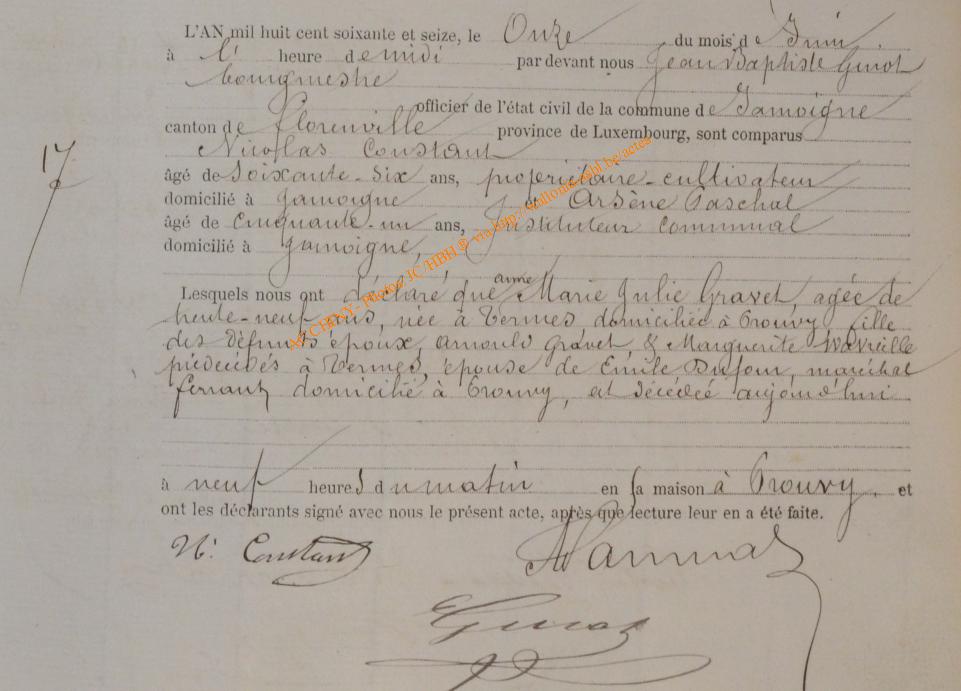 L'AN mil huit cent soixante et seize, le Onze du mois de Juin
à l' heure de midi par devant nous Jean Baptiste Guiot
bourgmestre
officier de l'état civil de la commune de Jamoigne
canton de Florenville province de Luxembourg, sont comparus
Nicolas Constant
17
âgé de Soixante-six ans, propriétaire-cultivateur
domicilié à Jamoigne et Arsène Paschal
âgé de cinquante-un ans, Instituteur communal
domicilié à Jamoigne,
Lesquels nous ont déclaré que anne Marie Julie Gravet, agée de
trente-neuf ans, née à Termes, domiciliée à Prouvy, fille
des défunts époux, arnould gravet, & Marguerite
prédécédés à Termes, épouse de Emile Dufour, maréchal
ferrant domicilié à Prouvy, est décédée aujourd'hui
à neuf heures du matin en sa maison à Prouvy. et
ont les déclarants signé avec nous le présent acte, après que lecture leur en a été faite.
N: Constant
Guiot
ARCHENY- Photos JC/HBH @ via http://wallonia-asbl.be/actes